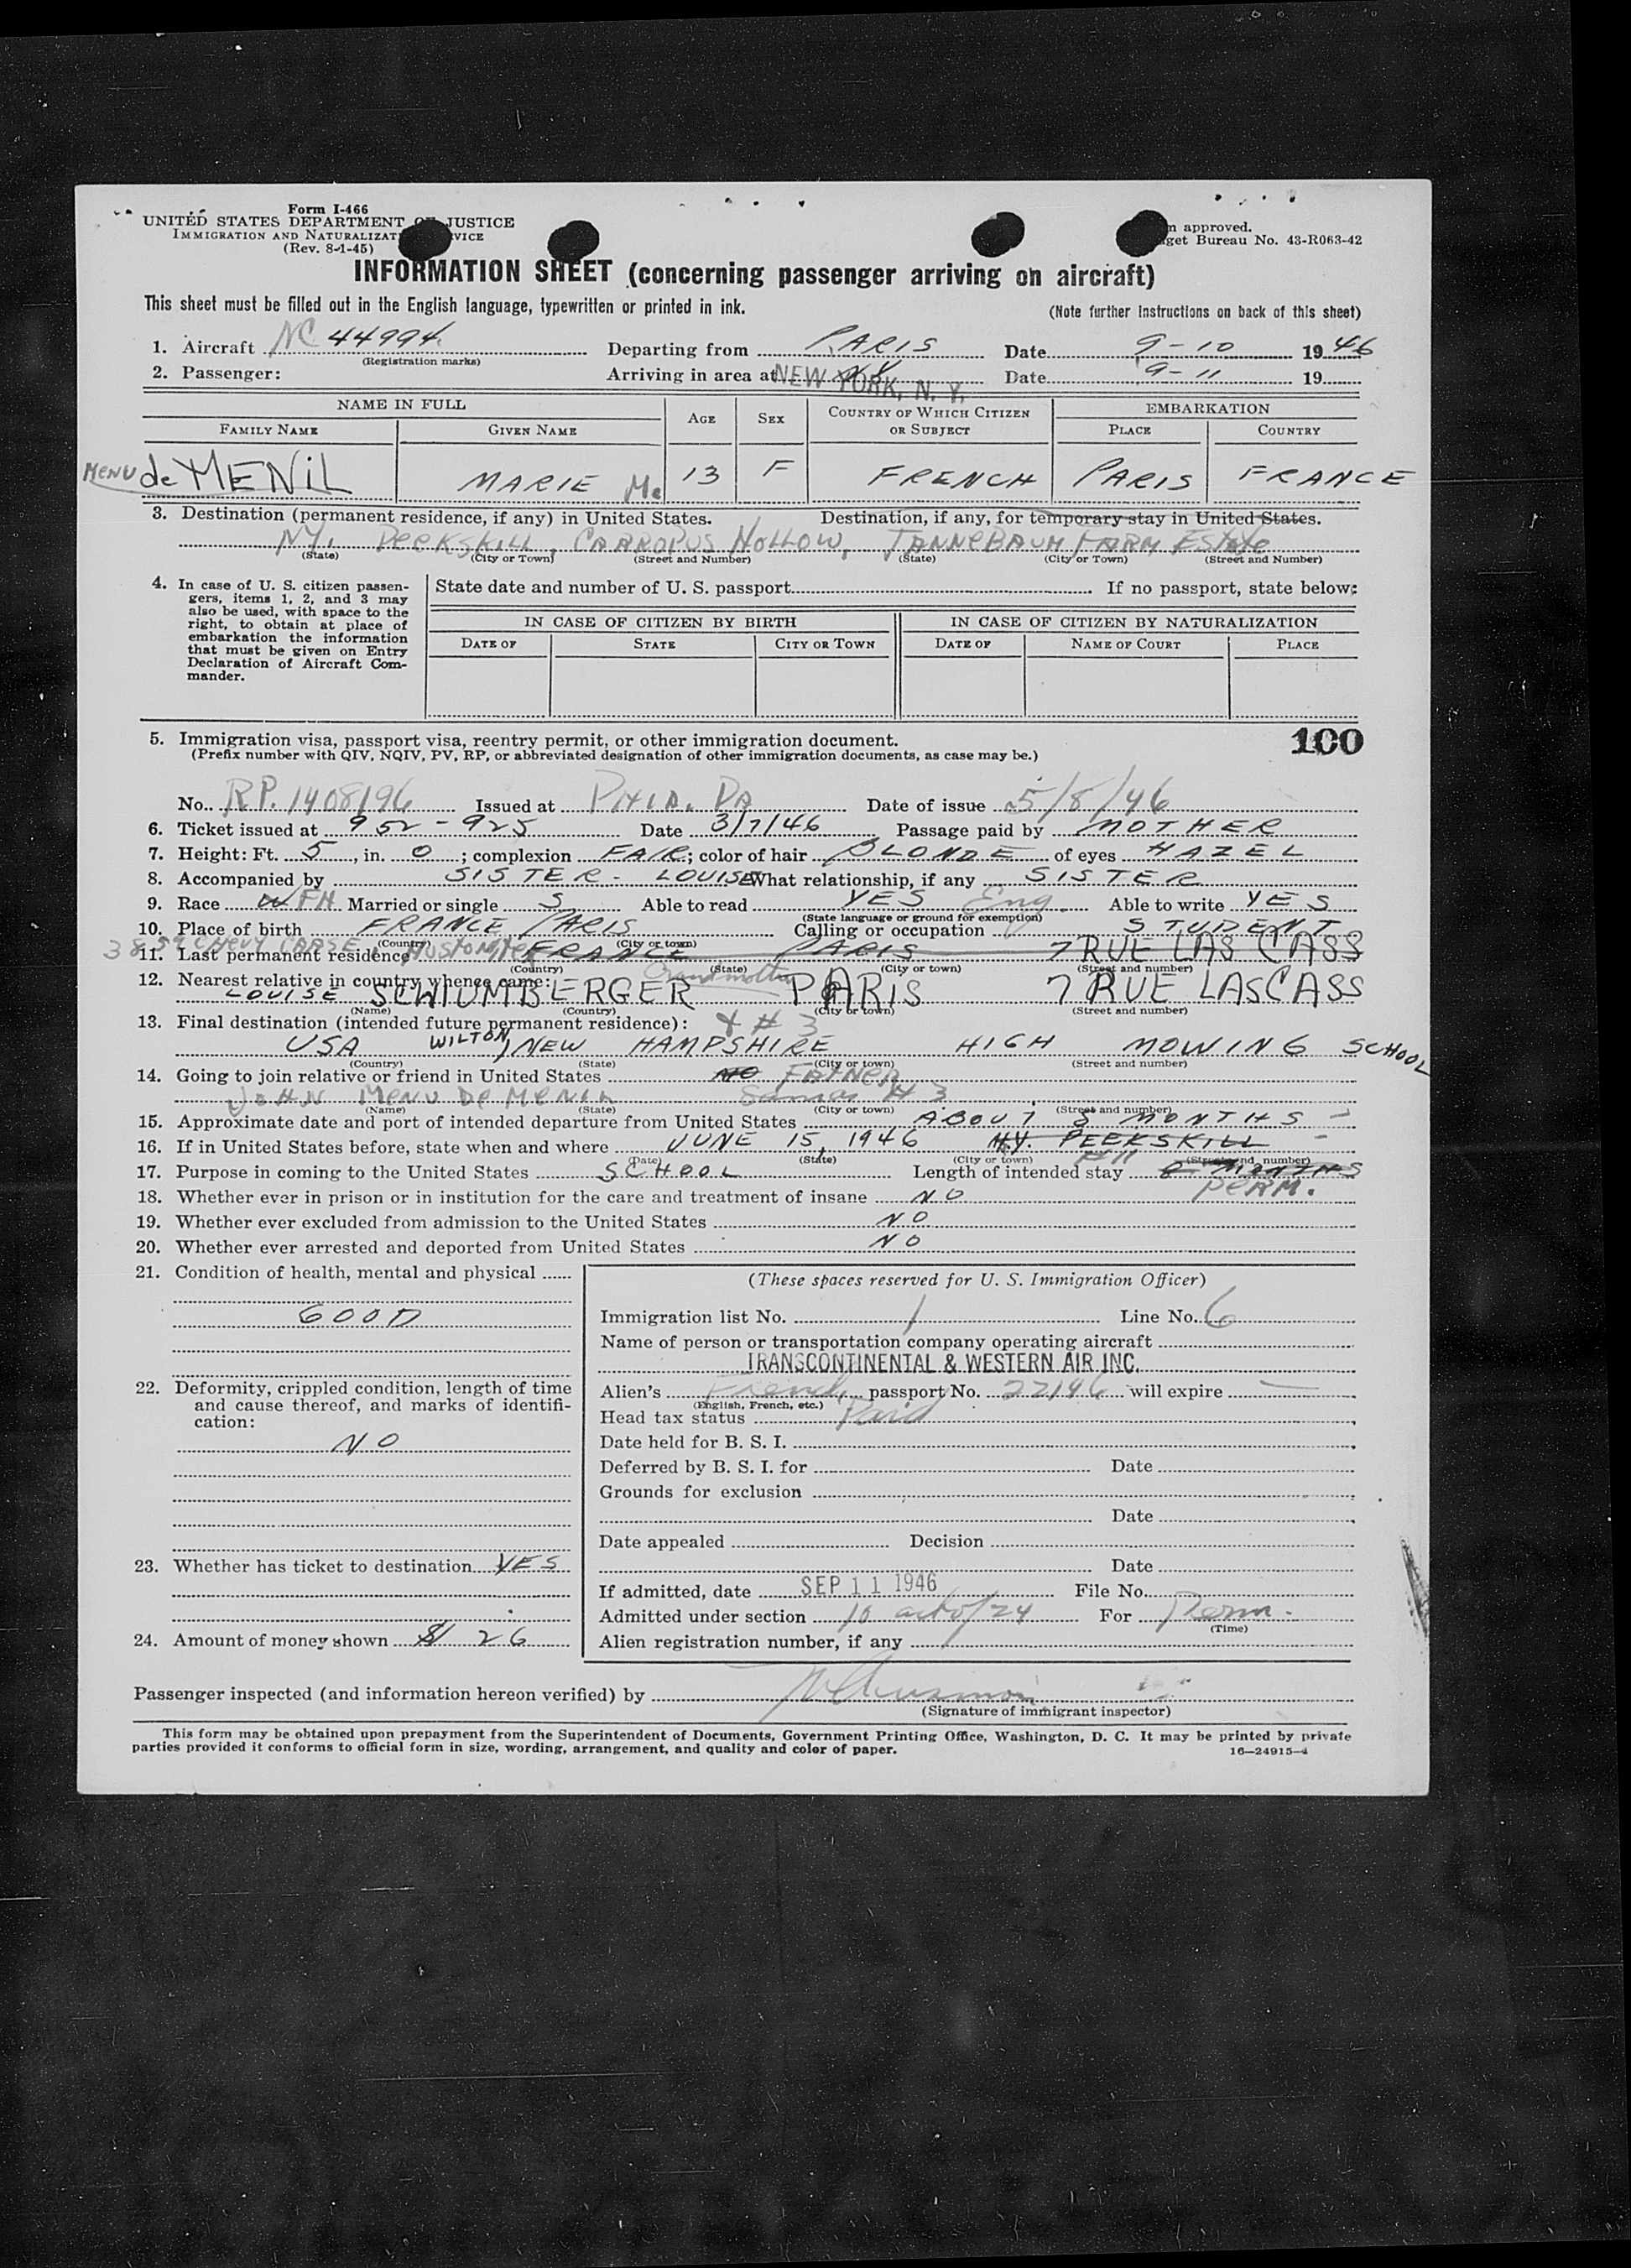 Form I-466
UNITED STATES DEPARTMENT OF JUSTICE
IMMIGRATION AND NATURALIZAT VICE
(Rev. 8-1-45)
n approved.
get Bureau No. 43-R063-42
INFORMATION SHEET (concerning passenger arriving on aircraft)
This sheet must be filled out in the English language, typewritten or printed in ink.
(Note further instructions on back of this sheet)
1. Aircraft NC 44994 Departing from PARIS Date 9-10 1946
(Registration marks)
2. Passenger: Arriving in area at NEW YORK, N. Y. Date 9-11 19
NAME IN FULL AGE SEX COUNTRY OF WHICH CITIZEN OR SUBJECT EMBARKATION
FAMILY NAME GIVEN NAME PLACE COUNTRY
MENU de MENIL MARIE M. 13 F FRENCH PARIS FRANCE
3. Destination (permanent residence, if any) in United States. Destination, if any, for temporary stay in United States.
NY, PEEKSKILL, CARROPUS HOLLOW, TANNEBAUM FARM Estate
(State) (City or Town) (Street and Number) (State) (City or Town) (Street and Number)
4. In case of U. S. citizen passengers, items 1, 2, and 3 may also be used, with space to the right, to obtain at place of embarkation the information that must be given on Entry Declaration of Aircraft Commander.
State date and number of U. S. passport If no passport, state below:
IN CASE OF CITIZEN BY BIRTH IN CASE OF CITIZEN BY NATURALIZATION
DATE OF STATE CITY OR TOWN DATE OF NAME OF COURT PLACE
100
5. Immigration visa, passport visa, reentry permit, or other immigration document.
(Prefix number with QIV, NQIV, PV, RP, or abbreviated designation of other immigration documents, as case may be.)
No. RP. 1408196 Issued at PHIA. PA Date of issue 5/8/46
6. Ticket issued at 952-925 Date 3/7/46 Passage paid by MOTHER
7. Height: Ft. 5, in. 0; complexion FAIR; color of hair BLONDE of eyes HAZEL
8. Accompanied by SISTER - LOUISE What relationship, if any SISTER
9. Race W FH Married or single S Able to read YES Eng. Able to write YES
(State language or ground for exemption)
10. Place of birth FRANCE PARIS Calling or occupation STUDENT
(Country) (City or town)
11. Last permanent residence FRANCE PARIS 7 RUE LAS CASS
(Country) (State) (City or town) (Street and number)
12. Nearest relative in country whence came: Grandmother
LOUISE SCHLUMBERGER PARIS 7 RUE LASCASS
(Name) (Country) (City or town) (Street and number)
13. Final destination (intended future permanent residence): # 3
USA WILTON, NEW HAMPSHIRE HIGH MOWING SCHOOL
(Country) (State) (City or town) (Street and number)
14. Going to join relative or friend in United States NO FATHER
JOHN MENU DE MENIL Same as # 3
(Name) (State) (City or town) (Street and number)
15. Approximate date and port of intended departure from United States ABOUT 8 MONTHS -
16. If in United States before, state when and where JUNE 15, 1946 N.Y. PEEKSKILL -
(Date) (State) (City or town) (Street and number)
17. Purpose in coming to the United States SCHOOL Length of intended stay 8 MONTHS
PERM.
18. Whether ever in prison or in institution for the care and treatment of insane NO
19. Whether ever excluded from admission to the United States NO
20. Whether ever arrested and deported from United States NO
21. Condition of health, mental and physical
GOOD
22. Deformity, crippled condition, length of time and cause thereof, and marks of identification:
NO
23. Whether has ticket to destination YES
24. Amount of money shown $ 26
(These spaces reserved for U. S. Immigration Officer)
Immigration list No. 1 Line No. 6
Name of person or transportation company operating aircraft
TRANSCONTINENTAL & WESTERN AIR INC.
Alien's French passport No. 22196 will expire —
(English, French, etc.)
Head tax status Paid
Date held for B. S. I.
Deferred by B. S. I. for Date
Grounds for exclusion
Date
Date appealed Decision
Date
If admitted, date SEP 11 1946 File No.
Admitted under section 10 act of 24 For Perm.
(Time)
Alien registration number, if any
Passenger inspected (and information hereon verified) by
(Signature of immigrant inspector)
This form may be obtained upon prepayment from the Superintendent of Documents, Government Printing Office, Washington, D. C. It may be printed by private
parties provided it conforms to official form in size, wording, arrangement, and quality and color of paper.
16—24915-4